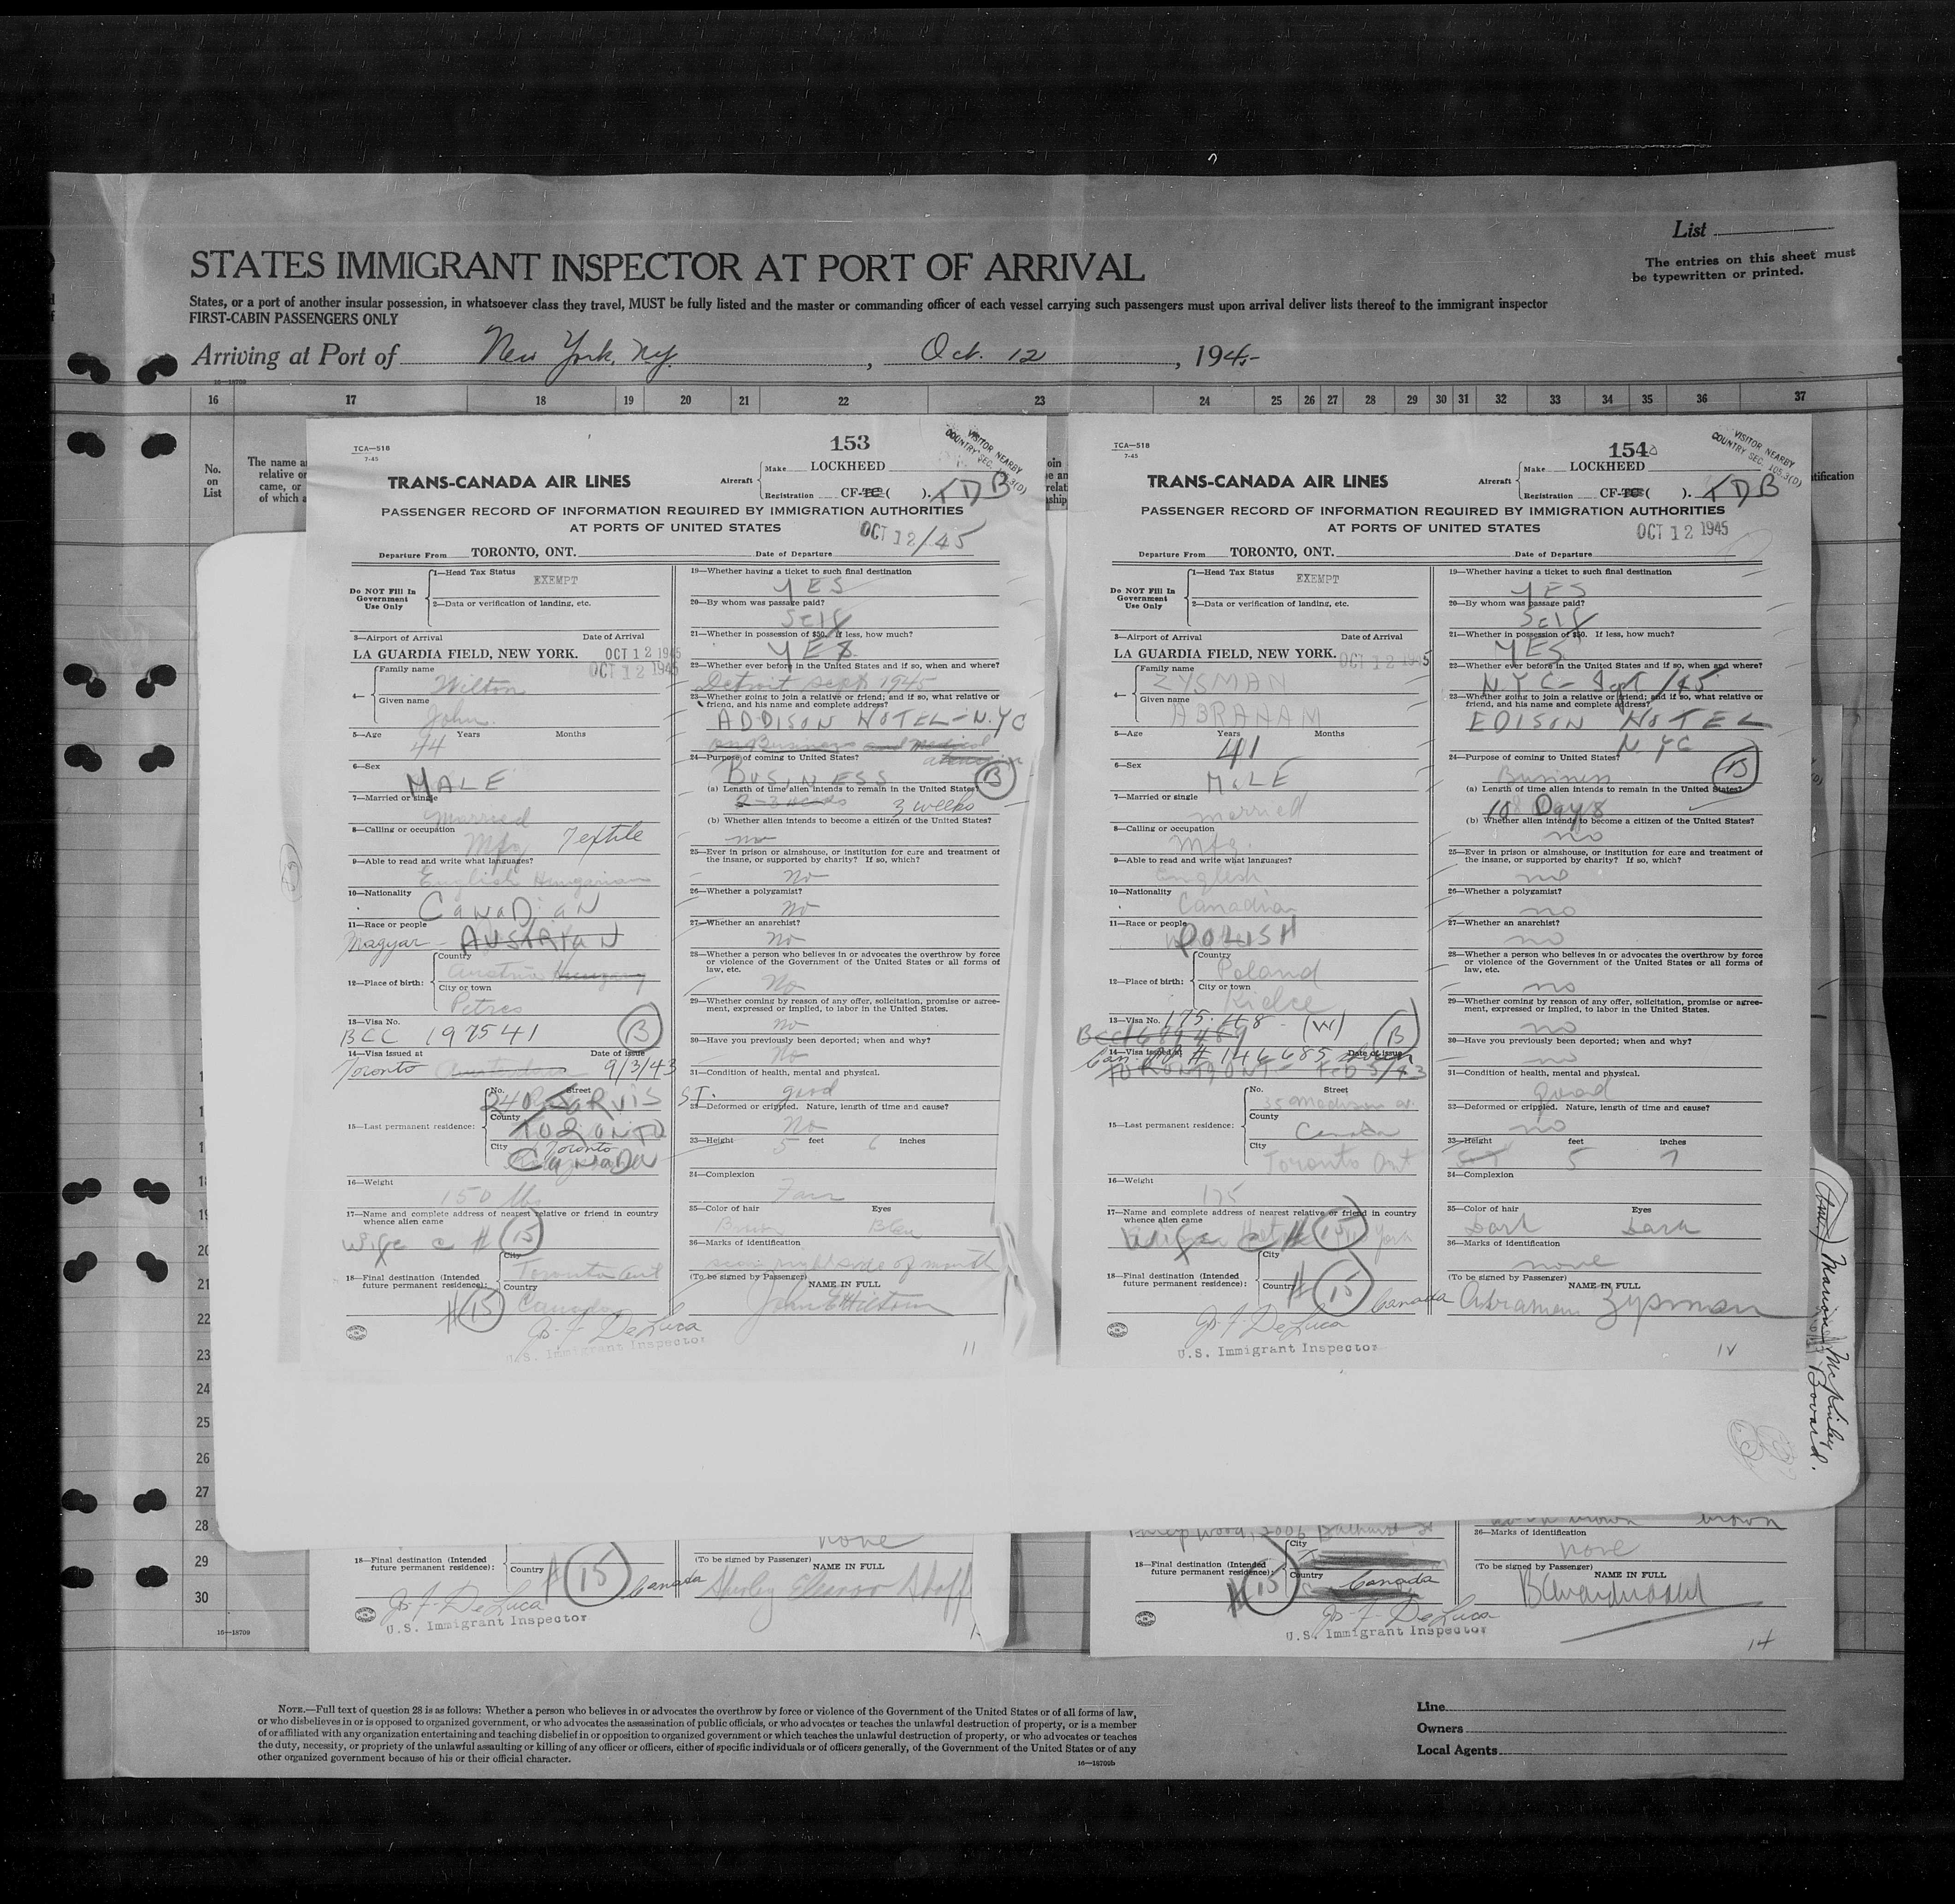 List
The entries on this sheet must
be typewritten or printed.
STATES IMMIGRANT INSPECTOR AT PORT OF ARRIVAL
States, or a port of another insular possession, in whatsoever class they travel, MUST be fully listed and the master or commanding officer of each vessel carrying such passengers must upon arrival deliver lists thereof to the immigrant inspector
FIRST-CABIN PASSENGERS ONLY
Arriving at Port of New York, Ny. , Oct. 12 , 1945
16—18709
16 17 18 19 20 21 22 23 24 25 26 27 28 29 30 31 32 33 34 35 36 37
No.
on
List
The name a
relative or
came, or
of which a
TCA—518
7-45
153
VISITOR NEARBY
COUNTRY SEC. 105.3(D)
TRANS-CANADA AIR LINES
Aircraft Make LOCKHEED
Registration CF-TC ( ). TDB
PASSENGER RECORD OF INFORMATION REQUIRED BY IMMIGRATION AUTHORITIES
AT PORTS OF UNITED STATES
OCT 12/45
Departure From TORONTO, ONT. Date of Departure
Do NOT Fill In
Government
Use Only
1—Head Tax Status
EXEMPT
2—Data or verification of landing, etc.
3—Airport of Arrival Date of Arrival
LA GUARDIA FIELD, NEW YORK. OCT 12 1945
OCT 12 1945
4— Family name
Wilton
Given name
John.
5—Age Years Months
44
6—Sex
MALE
7—Married or single
Married
8—Calling or occupation
Mfg Textile
9—Able to read and write what languages?
English Hungarian
10—Nationality
CANADIAN
11—Race or people
Magyar - AUSTRIAN
12—Place of birth: Country
Austria Hungary
City or town
Petres
13—Visa No.
BCC 197541 B
14—Visa issued at Date of issue
Toronto 9/3/43
15—Last permanent residence: No. Street
240 JARVIS ST.
County
TORONTO
City Toronto
CANADA
16—Weight
150 lbs
17—Name and complete address of nearest relative or friend in country
whence alien came
Wife c # 15
18—Final destination (Intended
future permanent residence): City
Toronto Ont
Country
# 15 Canada
Js. F. DeLuca
U.S. Immigrant Inspector
19—Whether having a ticket to such final destination
YES
20—By whom was passage paid?
Self
21—Whether in possession of $50. If less, how much?
YES
22—Whether ever before in the United States and if so, when and where?
Detroit Sept 1945
23—Whether going to join a relative or friend; and if so, what relative or
friend, and his name and complete address?
ADDISON HOTEL - N.YC
on Business and medical
24—Purpose of coming to United States?
BUSINESS B
(a) Length of time alien intends to remain in the United States?
2-3 weeks 3 weeks
(b) Whether alien intends to become a citizen of the United States?
no
25—Ever in prison or almshouse, or institution for care and treatment of
the insane, or supported by charity? If so, which?
No
26—Whether a polygamist?
No
27—Whether an anarchist?
No
28—Whether a person who believes in or advocates the overthrow by force
or violence of the Government of the United States or all forms of
law, etc.
No
29—Whether coming by reason of any offer, solicitation, promise or agree-
ment, expressed or implied, to labor in the United States.
no
30—Have you previously been deported; when and why?
No
31—Condition of health, mental and physical.
good
32—Deformed or crippled. Nature, length of time and cause?
No
33—Height 5 feet 6 inches
34—Complexion
Fair
35—Color of hair Eyes
Brown Blue
36—Marks of identification
right side of mouth
(To be signed by Passenger) NAME IN FULL
John E Wilton
11
TCA—518
7-45
154
VISITOR NEARBY
COUNTRY SEC. 105.3(D)
tification
TRANS-CANADA AIR LINES
Aircraft Make LOCKHEED
Registration CF-TC ( ). TDB
PASSENGER RECORD OF INFORMATION REQUIRED BY IMMIGRATION AUTHORITIES
AT PORTS OF UNITED STATES
OCT 12 1945
Departure From TORONTO, ONT. Date of Departure
Do NOT Fill In
Government
Use Only
1—Head Tax Status
EXEMPT
2—Data or verification of landing, etc.
3—Airport of Arrival Date of Arrival
LA GUARDIA FIELD, NEW YORK. OCT 12 1945
4— Family name
ZYSMAN
Given name
ABRAHAM
5—Age Years Months
41
6—Sex
MALE
7—Married or single
married
8—Calling or occupation
Mfg.
9—Able to read and write what languages?
English
10—Nationality
Canadian
11—Race or people
POLISH
12—Place of birth: Country
Poland
City or town
Kielce
13—Visa No. 175.468 - (W) B
14—Visa issued at Date of issue
Can. # 146685
TORONTO ONT - Feb 5/43
15—Last permanent residence: No. Street
35 Madison av.
County
Canada
City
Toronto Ont
16—Weight
175
17—Name and complete address of nearest relative or friend in country
whence alien came
Wife c # 15
18—Final destination (Intended
future permanent residence): City
Country # 15 Canada
Js. F. DeLuca
U.S. Immigrant Inspector
19—Whether having a ticket to such final destination
YES
20—By whom was passage paid?
Self
21—Whether in possession of $50. If less, how much?
YES
22—Whether ever before in the United States and if so, when and where?
N.Y.C - Sept /45
23—Whether going to join a relative or friend; and if so, what relative or
friend, and his name and complete address?
EDISON HOTEL
N.YC
24—Purpose of coming to United States?
Business B
(a) Length of time alien intends to remain in the United States?
10 Days
(b) Whether alien intends to become a citizen of the United States?
no
25—Ever in prison or almshouse, or institution for care and treatment of
the insane, or supported by charity? If so, which?
no
26—Whether a polygamist?
no
27—Whether an anarchist?
no
28—Whether a person who believes in or advocates the overthrow by force
or violence of the Government of the United States or all forms of
law, etc.
no
29—Whether coming by reason of any offer, solicitation, promise or agree-
ment, expressed or implied, to labor in the United States.
no
30—Have you previously been deported; when and why?
no
31—Condition of health, mental and physical.
good
32—Deformed or crippled. Nature, length of time and cause?
no
33—Height 5 feet 7 inches
34—Complexion
35—Color of hair Eyes
Dark Dark
36—Marks of identification
none
(To be signed by Passenger) NAME IN FULL
Abraham Zysman
12
Marion McKinley Bovard.
18
19
20
21
22
23
24
25
26
27
28
29
30
16—18709
none
18—Final destination (Intended
future permanent residence): Country # 15 Canada
(To be signed by Passenger) NAME IN FULL
Shirley Eleanor
Js. F. DeLuca
U.S. Immigrant Inspector
Wood, 2006 Bathurst St
brown
36—Marks of identification
none
18—Final destination (Intended
future permanent residence): City
Country
# 15 Canada
(To be signed by Passenger) NAME IN FULL
Js. F. DeLuca
U.S. Immigrant Inspector
14
NOTE.—Full text of question 28 is as follows: Whether a person who believes in or advocates the overthrow by force or violence of the Government of the United States or of all forms of law,
or who disbelieves in or is opposed to organized government, or who advocates the assassination of public officials, or who advocates or teaches the unlawful destruction of property, or is a member
of or affiliated with any organization entertaining and teaching disbelief in or opposition to organized government or which teaches the unlawful destruction of property, or who advocates or teaches
the duty, necessity, or propriety of the unlawful assaulting or killing of any officer or officers, either of specific individuals or of officers generally, of the Government of the United States or of any
other organized government because of his or their official character.
16—18709b
Line
Owners
Local Agents